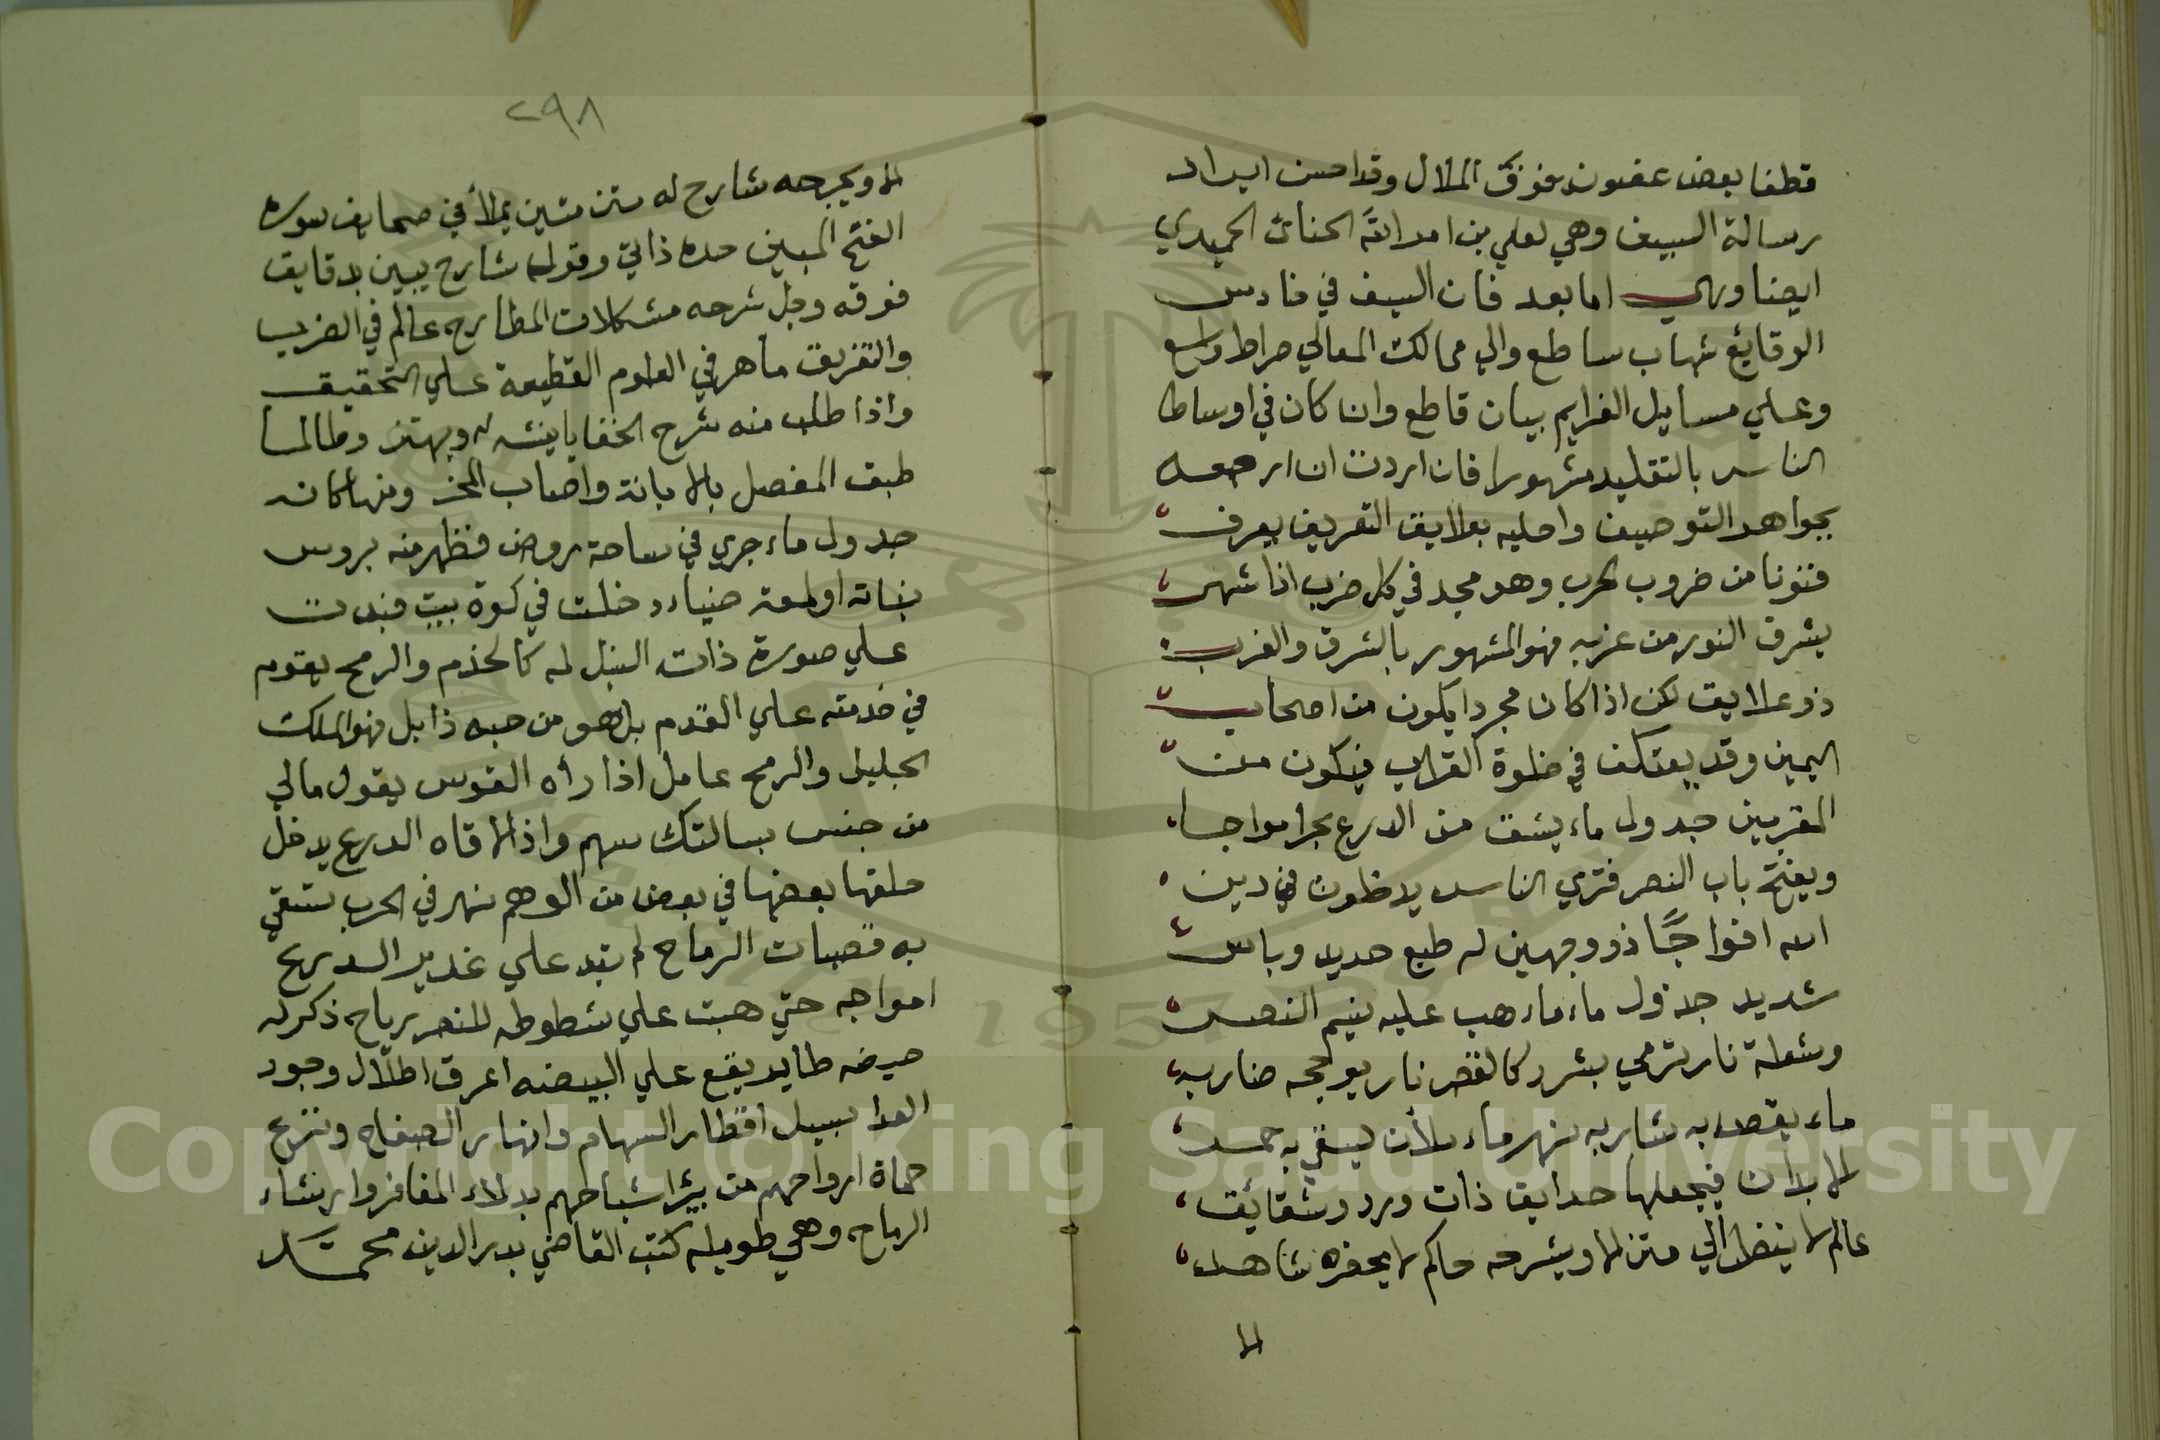 قطفنا بعض غصون خوف الملال وقد احسن ايراد
رسالة السيف وهي لعلي بن امر الله الحنائ الحميدي
ايضا وهي اما بعد فان السيف في حنادس
الوقايع شهاب ساطع والي ممالك المعالي صراط واسع
وعلي مسايل الغرايم بيان قاطع وان كان في اوساط
الناس بالتقليد مشهورا فان اردت ان ارصعه
بجواهر التوصيف واحليه بعلايق التعريف يعرف
فنونا من ضروب الحرب وهو مجد في كل ضرب اذا شهر
يشرق النور من غربه فهو المشهور بالشرق والغرب
ذو علايق لكن اذا كان مجردا يكون من اصحاب
اليمين وقد يعتكف في خلوة القراب فيكون من
المقربين جدول ماء يشق من الدرع بحرا مواجا
ويفتح باب النصر فتري الناس يدخلون في دين
الله افواجًا ذو وجهين له طبع حديد وباس
شديد جدول ماء ماء هب عليه نسيم النصر
وشعلة نار ترمي بشرر كالقصر نار يوججه ضاربه
ماء يغص به شاربه نهر ماء لأن يسقي به جسد
الابدان فيجعلها حدايق ذات ورد وشقائق
عالم لا ينظر الي متن الا ويشرحه حاكم لا يحضره شاهد
الا
٢٩٨
الا ويجرحه شارح له متن متين يملأ في صحايف سورة
الفتح المبين حده ذاتي وقوله شارح يبين بدقايق
فوقه وجل شرحه مشكلات المطارح عالم في الضرب
والتفريق ماهر في العلوم القطيعة علي التحقيق
واذا طلب منه شرح الخفايا ينشر له ويهتز وطالما
طبق المفصل بالابانة واصاب المحز ومنها كانه
جدول ماء جري في ساحة روض فظهر منه بروس
نباته او لمعة ضياء دخلت في كوة بيت فبدت
علي صورة ذات النبل له كالخدم والرمح يقوم
في خدمته علي القدم بل هو من حبه ذابل فهو الملك
الجليل والرمح عامل اذا رأه القوس يقول مالي
من جنس بسالتك سهم واذا لاقاه الدرع يدخل
حلقها بعضها في بعض من الوهم نهر في الحرب تستقي
به قصبات الرماح لم تبد علي غدير السد ريح
امواجه حتي هبت علي شطوطه للنصر رياح ذكر له
حيضه طاير يقع علي البيضه اغرق اطلال وجود
العدا بسيل اقطار السهام وانهار الصفاح ونزح
حماة ارواحهم من بئر اشباحهم بدلاء المغافر وارشاء
الرماح وهي طويله كتب القاضي بدر الدين محمد